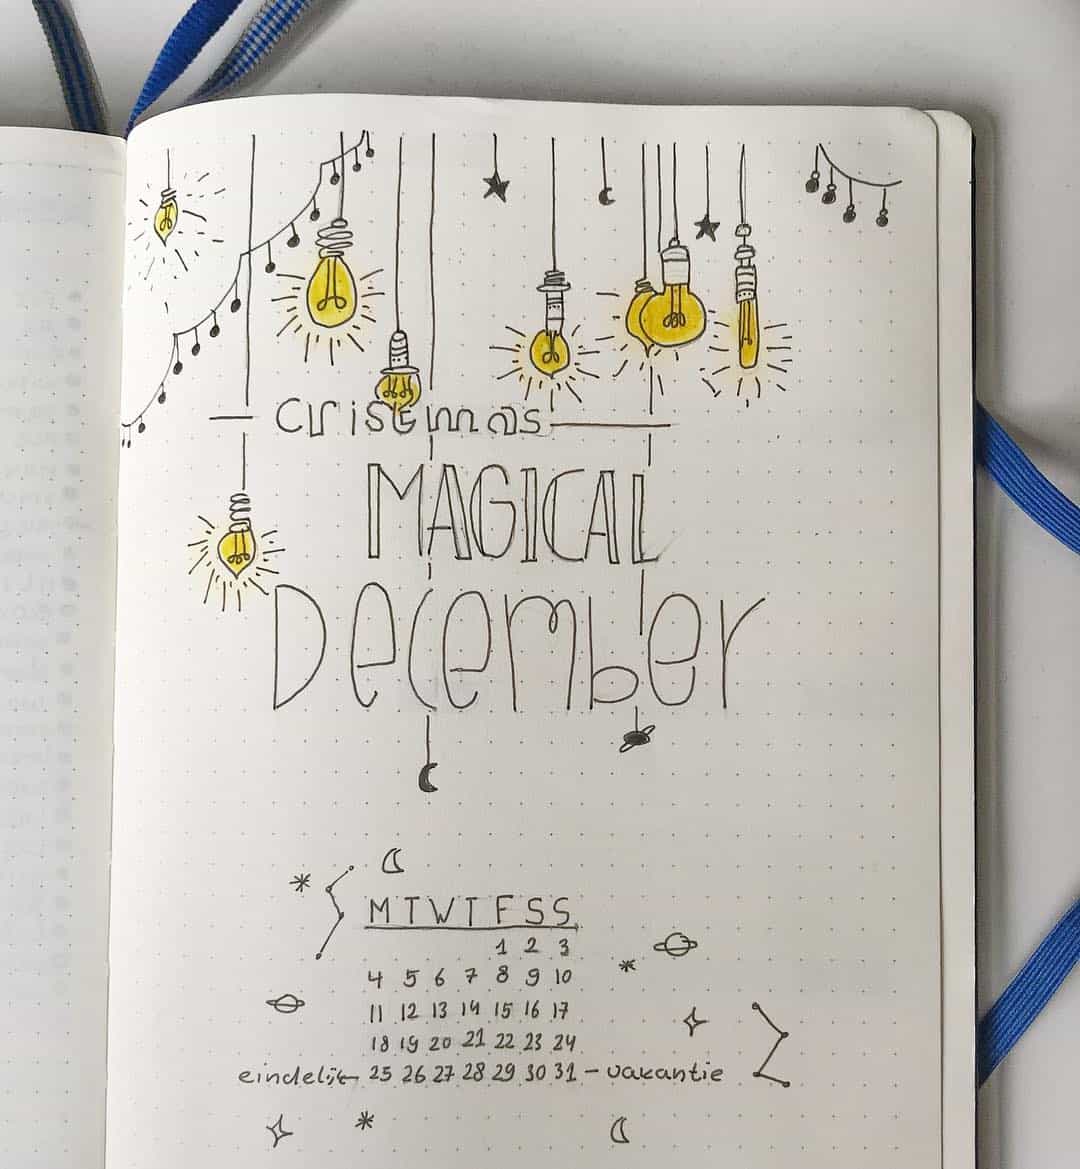 cristmas
MAGICAL
December
M T W T F S S
1 2 3
4 5 6 7 8 9 10
11 12 13 14 15 16 17
18 19 20 21 22 23 24
eindelijk 25 26 27 28 29 30 31 - vakantie